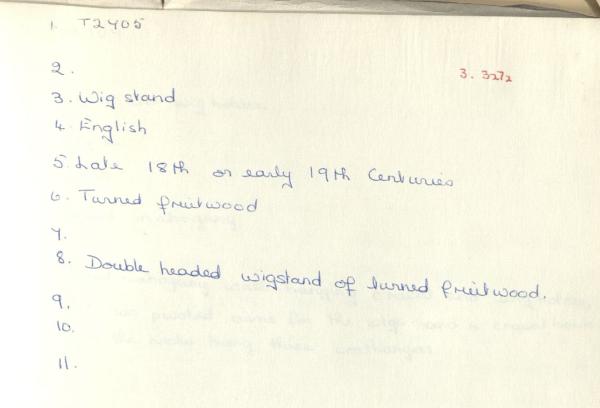 1. T2405
2.
3. 3272
3. Wig stand
4. English
5. Late 18th or early 19th Centuries
6. Turned fruitwood
7.
8. Double headed wigstand of turned fruitwood.
9.
10.
11.